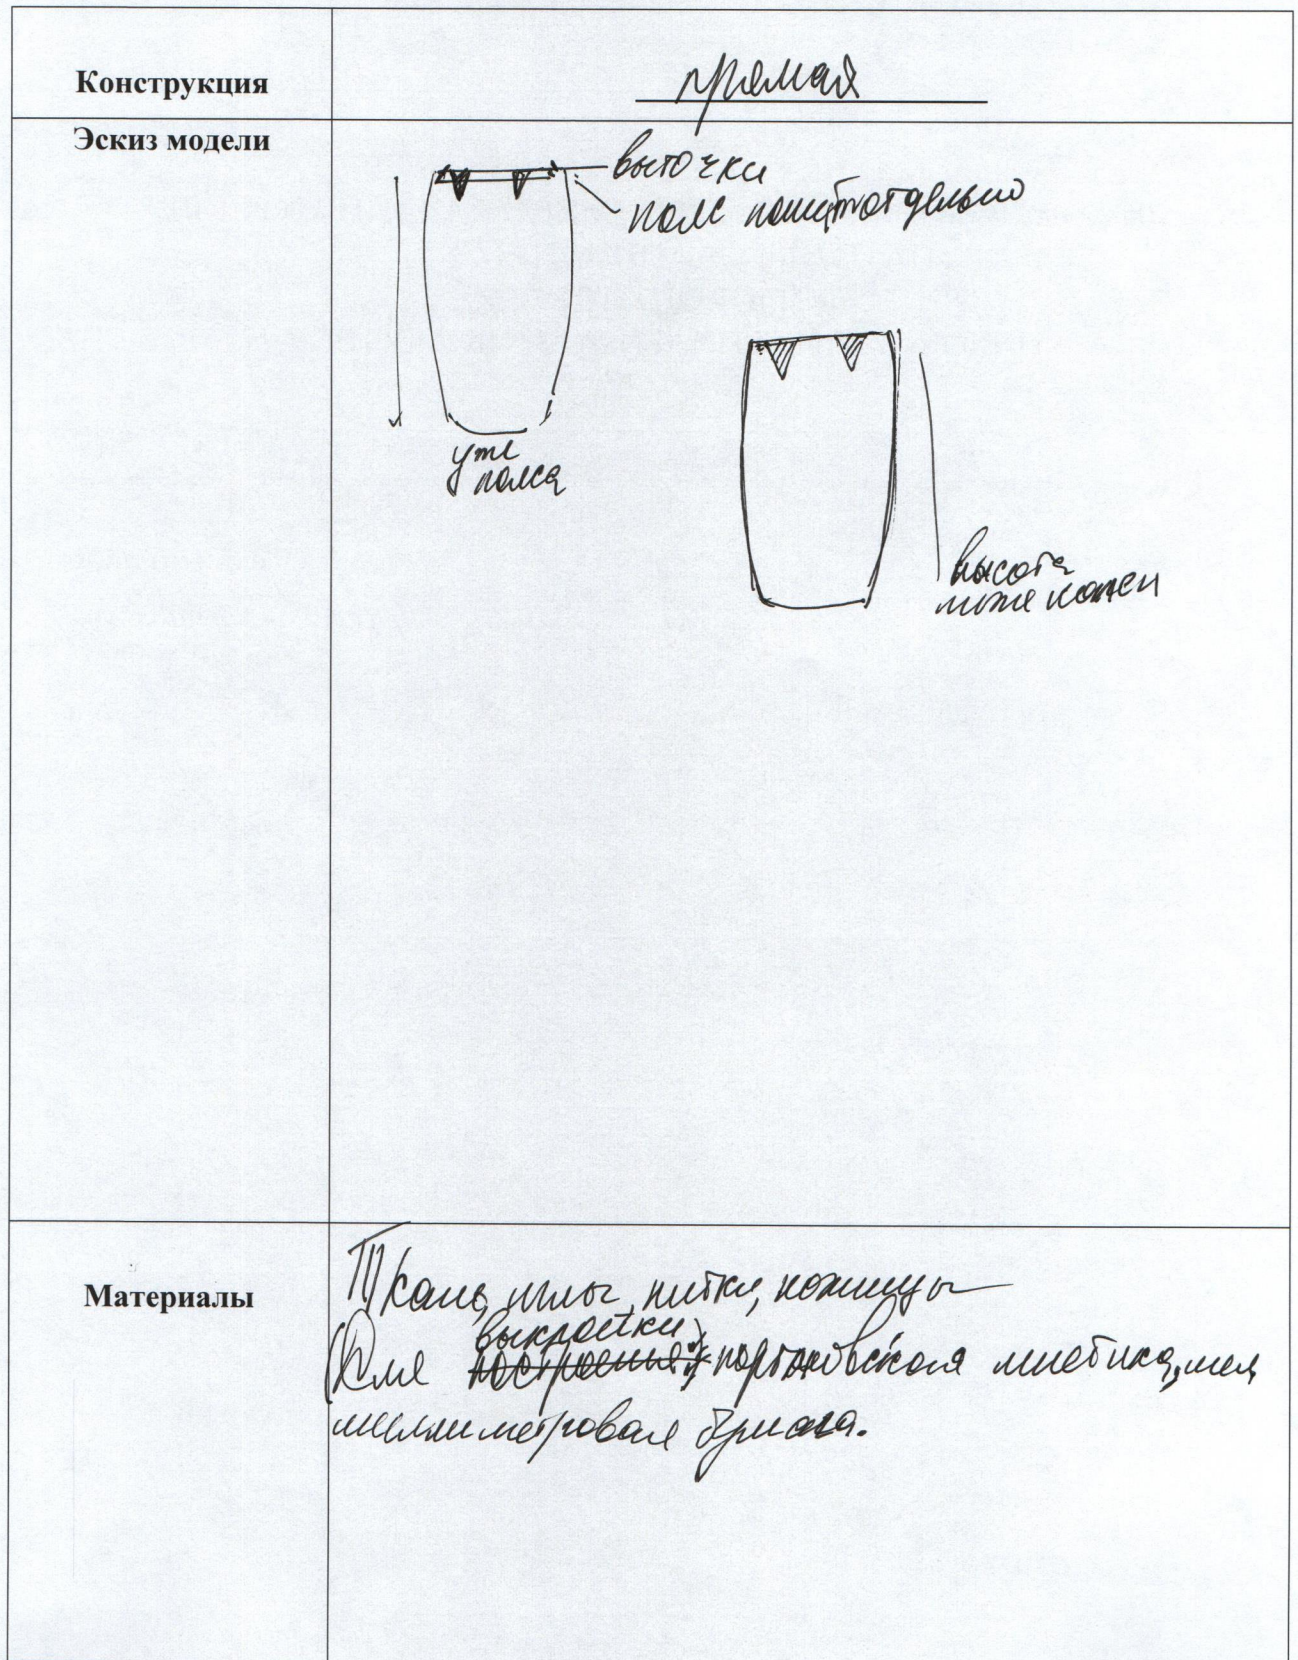 Конструкция
прямая
Эскиз модели
выточки
пояс пошит отдельно
уже
пояса
высота
ниже колен
Материалы
Ткань, иглы, нитки, ножницы
выкройки)
(Для построения портновская линейка, мел,
миллиметровая бумага.